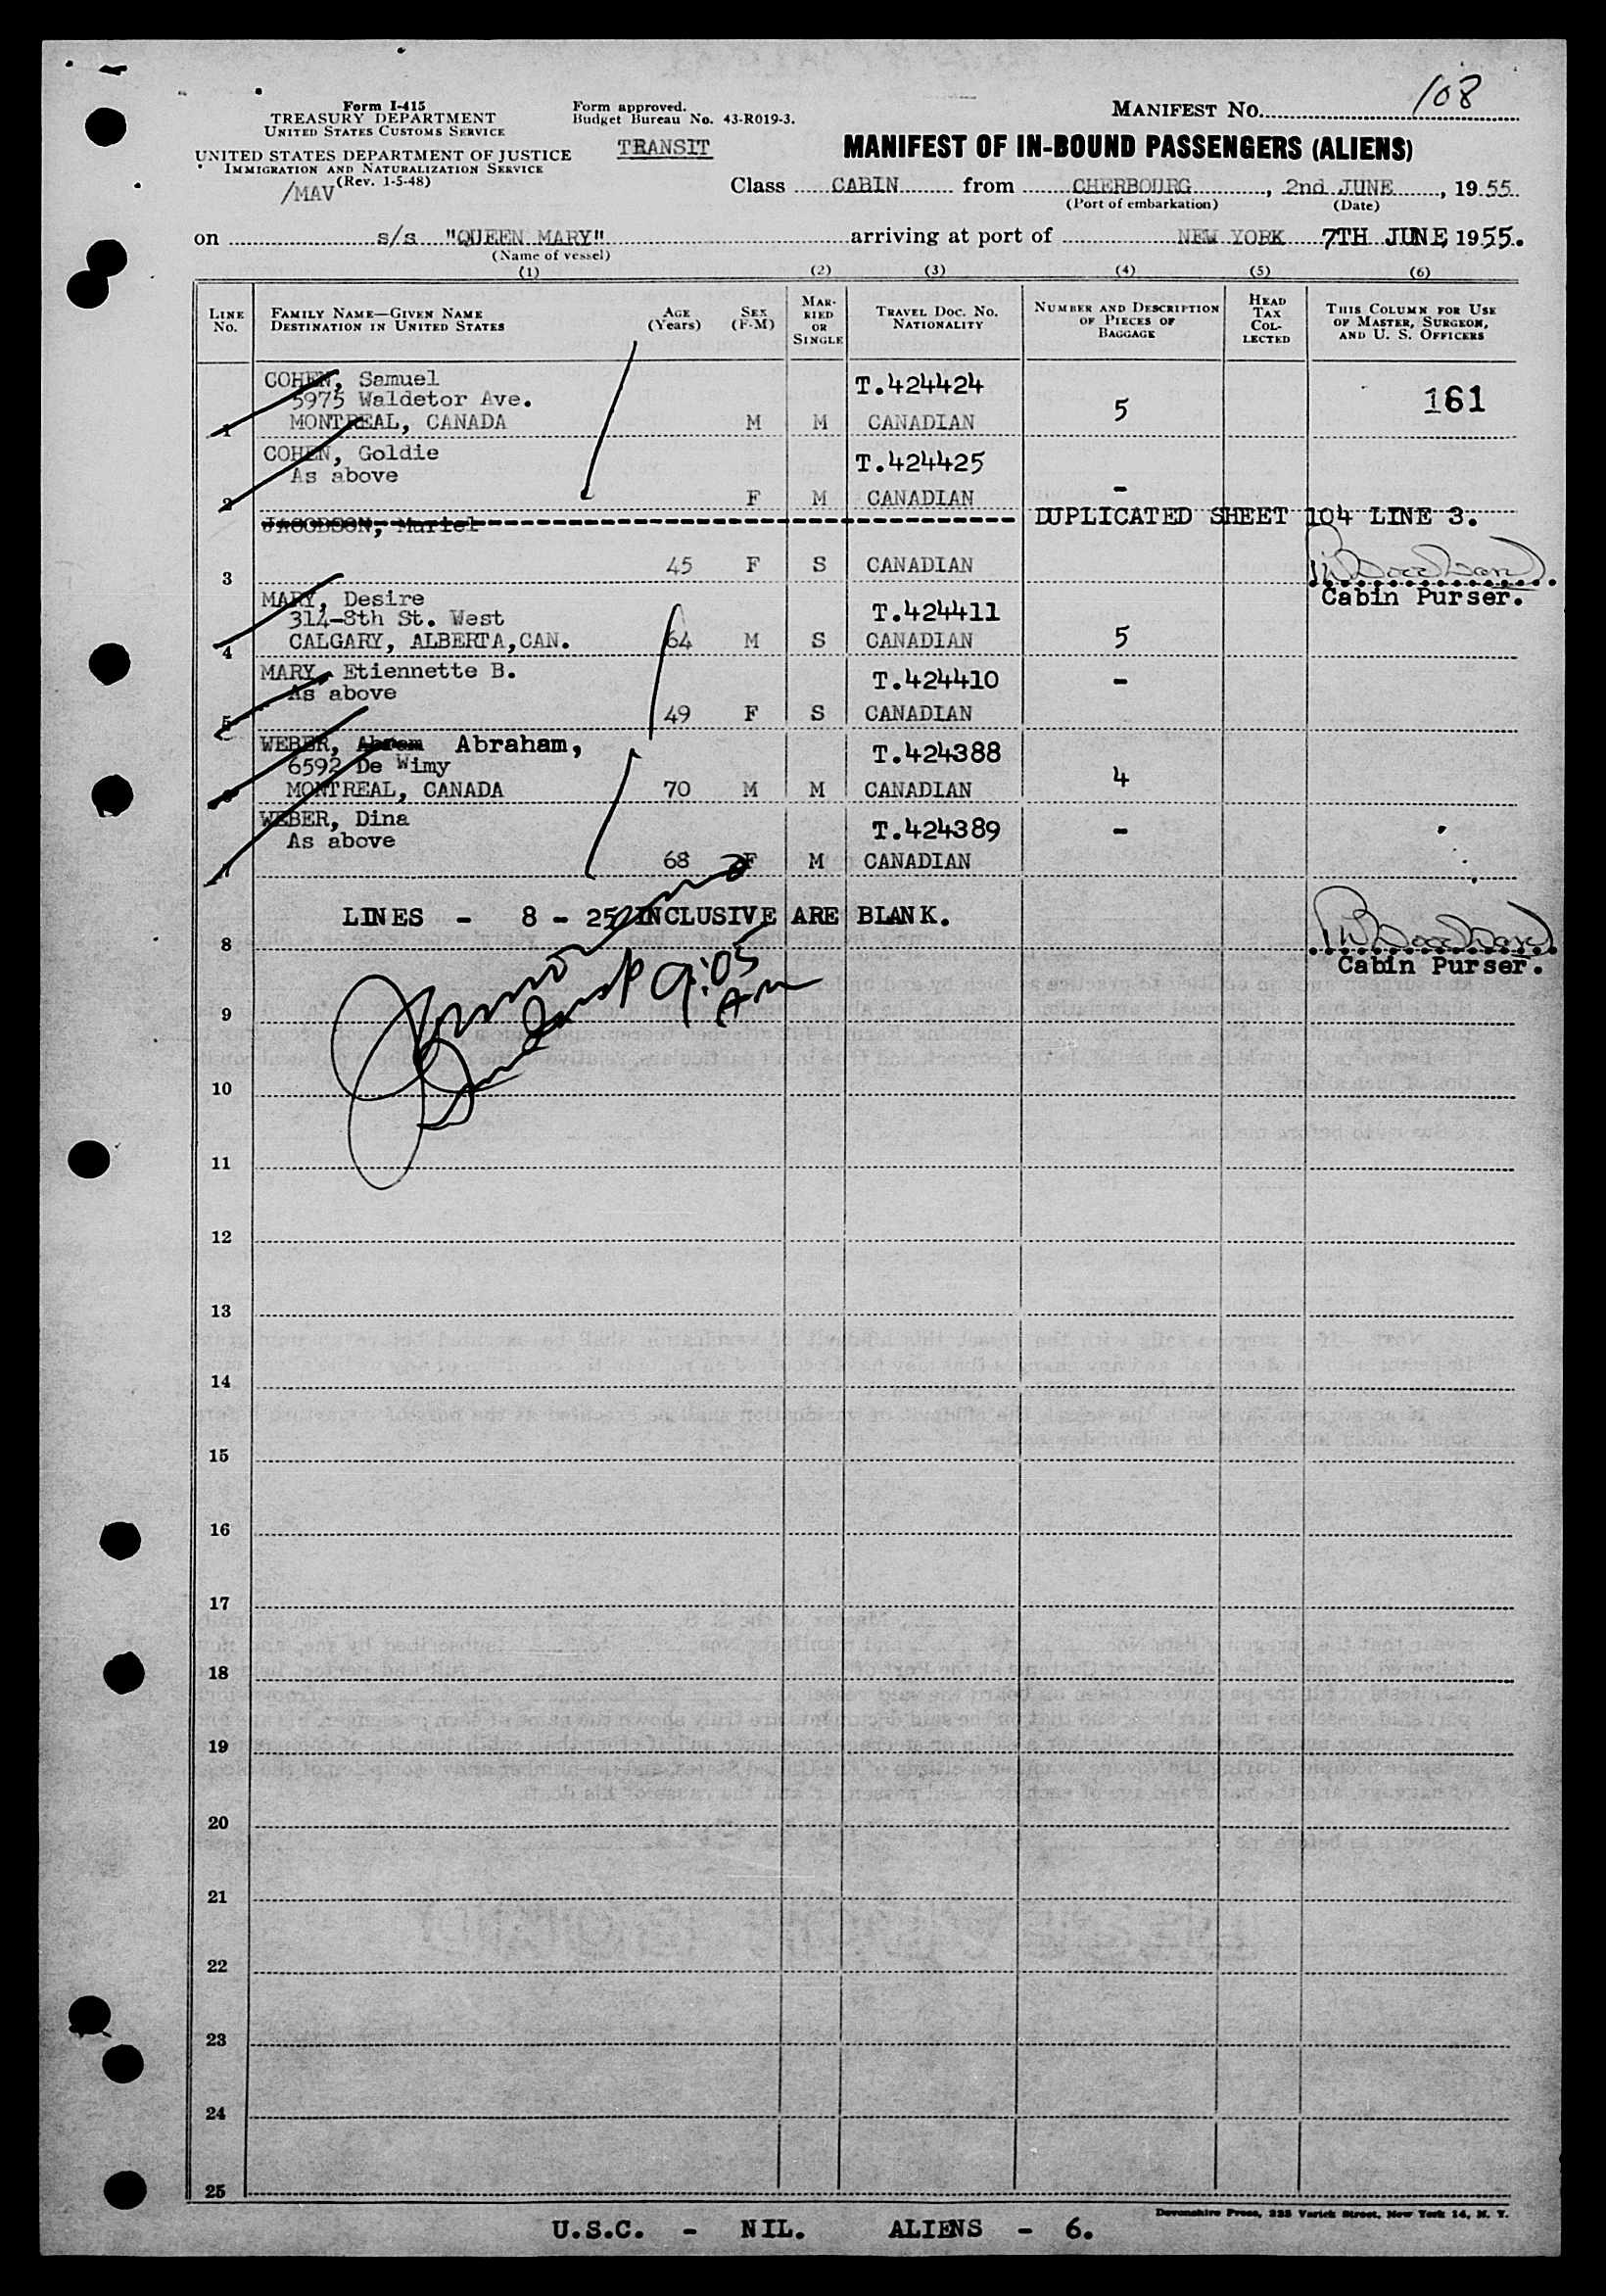 108
Form I-415
TREASURY DEPARTMENT
UNITED STATES CUSTOMS SERVICE
UNITED STATES DEPARTMENT OF JUSTICE
IMMIGRATION AND NATURALIZATION SERVICE
(Rev. 1-5-48)
/MAV
Form approved.
Budget Bureau No. 43-R019-3.
TRANSIT
MANIFEST NO.
MANIFEST OF IN-BOUND PASSENGERS (ALIENS)
Class CABIN from CHERBOURG, 2nd JUNE, 1955
(Port of embarkation) (Date)
on s/s "QUEEN MARY" arriving at port of NEW YORK 7TH JUNE, 1955.
(Name of vessel)
(1) (2) (3) (4) (5) (6)
LINE NO.
FAMILY NAME—GIVEN NAME
DESTINATION IN UNITED STATES
AGE (Years)
SEX (F-M)
MARRIED OR SINGLE
TRAVEL DOC. NO.
NATIONALITY
NUMBER AND DESCRIPTION OF PIECES OF BAGGAGE
HEAD TAX COLLECTED
THIS COLUMN FOR USE OF MASTER, SURGEON, AND U. S. OFFICERS
COHEN, Samuel T.424424
5975 Waldetor Ave. 5 161
1 MONTREAL, CANADA M M CANADIAN
COHEN, Goldie T.424425
As above
2 F M CANADIAN -
JACOBSON, Muriel DUPLICATED SHEET 104 LINE 3.
3 45 F S CANADIAN
Cabin Purser.
MARY, Desire
314-8th St. West T.424411
4 CALGARY, ALBERTA,CAN. 64 M S CANADIAN 5
MARY, Etiennette B. T.424410 -
As above
5 49 F S CANADIAN
WEBER, Abram Abraham, T.424388
6592 De Wimy
6 MONTREAL, CANADA 70 M M CANADIAN 4
WEBER, Dina T.424389 -
As above
7 68 F M CANADIAN
LINES - 8 - 25 INCLUSIVE ARE BLANK.
8
Cabin Purser.
9:05
AM
9
10
11
12
13
14
15
16
17
18
19
20
21
22
23
24
25
Devonshire Press, 225 Varick Street, New York 14, N. Y.
U.S.C. - NIL. ALIENS - 6.